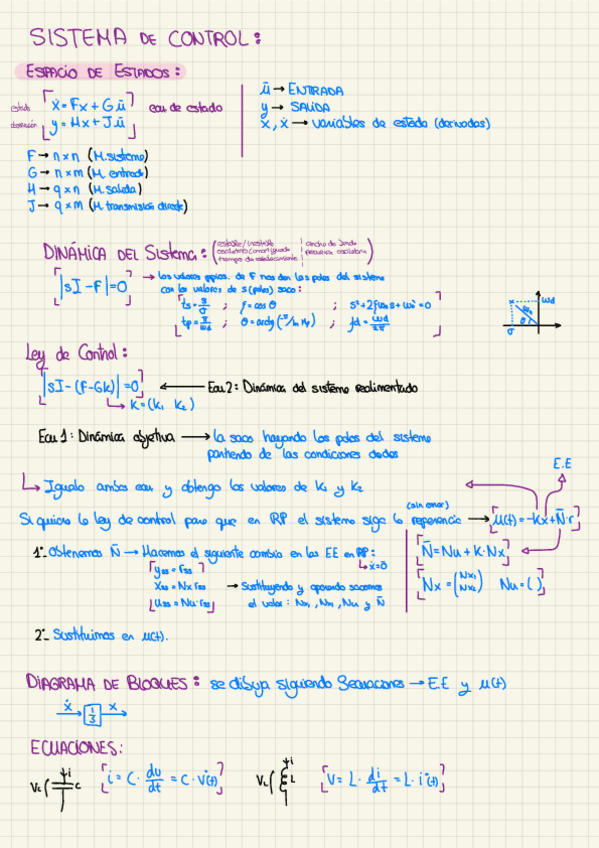 SISTEMA DE CONTROL:
ESPACIO DE ESTADOS:
estado ẋ = Fx + Gū ecu de estado
y = Hx + Jū
ū → ENTRADA
y → SALIDA
x, ẋ → variables de estado (derivadas)
F → n x n (M. sistema)
G → n x m (M. entrada)
H → q x n (M. salida)
J → q x m (M. transmisión directa)
DINÁMICA DEL Sistema: (estable/inestable ancho de banda
tiempo de establecimiento
|sI - F| = 0 → los valores ppios. de F nos dan los polos del sistema
con los valores de s (polos) saco:
ts = 3/σ ; ρ = cos θ ; s² + 2ρωns + ωn² = 0
tp = π/ωd ; θ = arctg(-π/ln Mp) ; fd = ωd/2π
ωd
ωn
θ
σ
Ley de Control:
|sI - (F - Gk)| = 0 ← Ecu 2: Dinámica del sistema realimentado
K = (k₁ k₂)
Ecu 1: Dinámica objetiva → la saco hayando los polos del sistema
partiendo de las condiciones dadas
E.E
Igualo ambas ecu y obtengo los valores de k₁ y k₂
(sin error)
Si quiero la ley de control para que en RP el sistema siga la referencia → μ(t) = -kx + N̄·r
1º_ Obtenemos N̄ → Hacemos el siguiente cambio en las EE en RP:
ẋ = 0
yss = rss
xss = Nx rss → Sustituyendo y operando sacamos
uss = Nu·rss el valor: Nx₁, Nx₂, Nu y N̄
N̄ = Nu + K·Nx
Nx = (Nx₁ Nx₂) Nu = ( )
2º_ Sustituimos en μ(t).
DIAGRAMA DE BLOQUES: se dibuja siguiendo 3 ecuaciones → E.E y μ(t)
ẋ 1/s x
ECUACIONES:
Vc i C i = C · dv/dt = C · v̇(t)
VL i L V = L · di/dt = L · i̇(t)